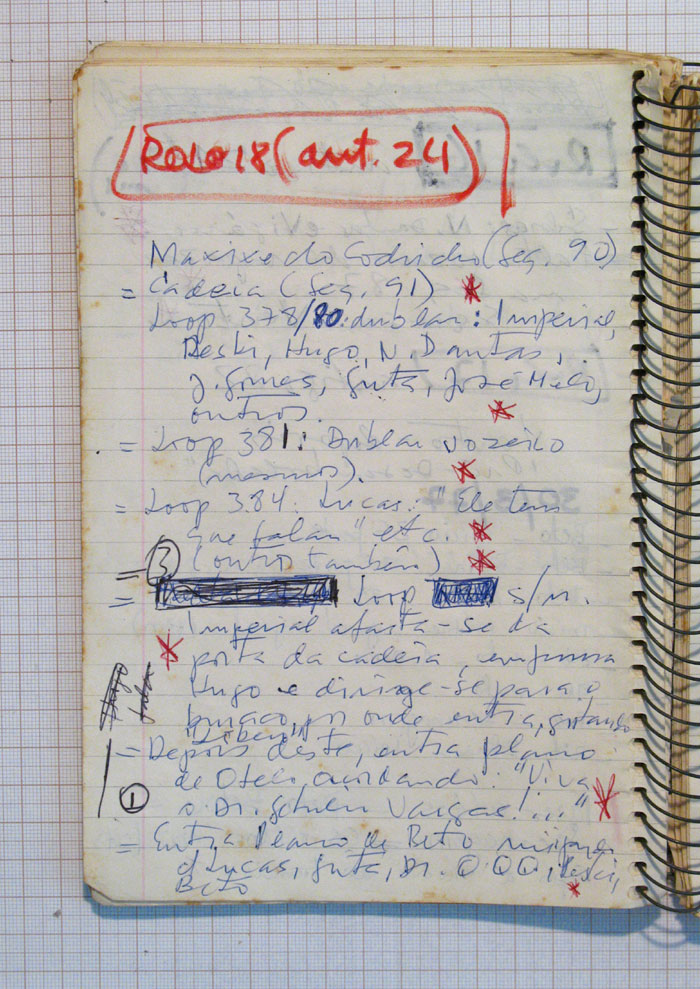 Rolo 18 (ant. 24)
Maxixe do (Seq. 90)
= Cadeia (Seq. 91)
Loop 378/80: dublar: Imperial,
Reski, Hugo, N. Dantas,
J. Gomes, Guta, José Melo,
outros.
= Loop 381: Dublar vozeiro
(mesmos).
= Loop 384: Lucas: "Ele tem
que falar" etc.
= 3 (outro também)
= Loop s/n.
Imperial afasta-se da
porta da cadeia, empurra
Hugo e dirige-se para o
buraco, por onde entra, gritando
Hugo
fala
= Depois deste, entra plano
de Otelo, acordando: "Viva
1 o Dr. Getulio Vargas!..."
= Entra Plano de Beto
Lucas, Guta, Dr. Q.Q.Q., Reski,
Beto